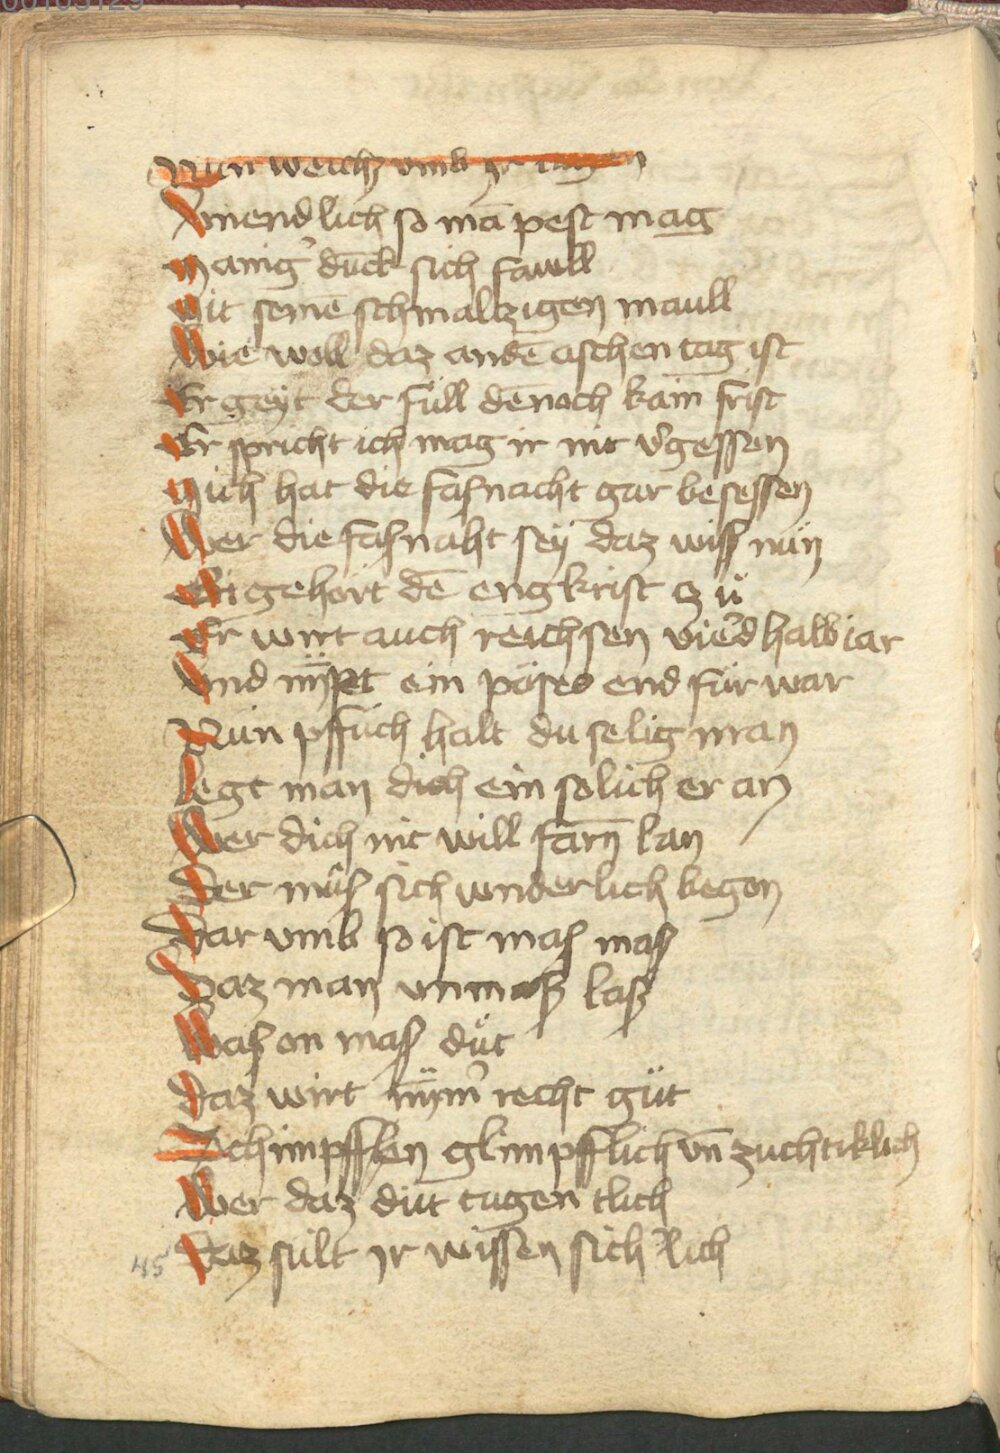 00105129
Nun weich vmb yr augen
Vmendlich so mā pest mag
Manig' dūck sich fawll
Mit seinē schmaltzigen maull
Wie woll daz andē aschen tag ist
Er geyt der füll dēnoch kain frist
Er spricht ich mag ir nit v'gessen
Mich hat die faßnacht gar besessen
Wer die faßnaht sey daz wiß nün
Si gehört dē engkrist zů
Er wirt auch reichsen vie'd halb iar
Vnd nÿpt ein pöses end für war
Nün pffüch halt du selig man
Legt man dich ein solich er an
Wer dich nit will farn lan
Der müß sich wnderlich begen
Dar vmb so ist maß maß
Daz man vnmaß laß
Waß on maß düt
Daz wirt nÿm' recht güt
Schimpffen glimpfflich vn̄ zuchtiklich
Wer daz düt tugentlich
Daz sült yr wissen sich'lich
45